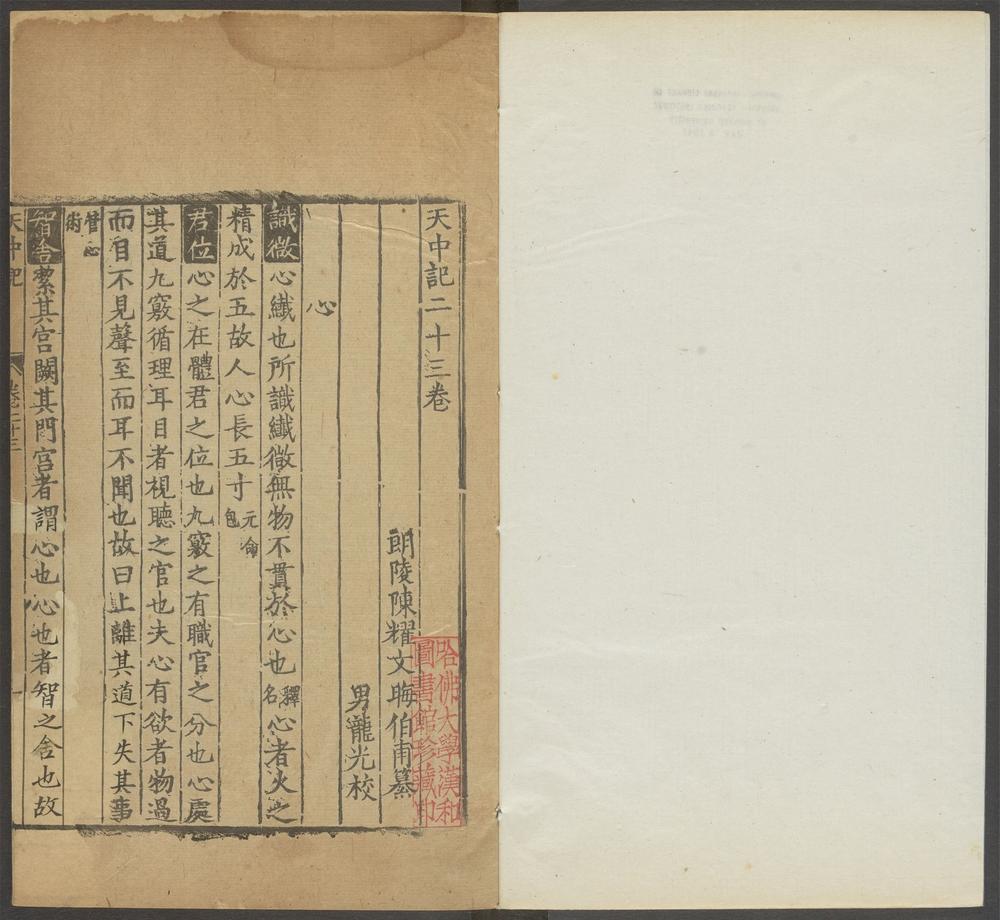 天中記二十三卷
朗陵陳耀文晦伯甫纂
男龍光校
心
識微心纖也所識纖微無物不貫於心也釋名心者火之
精成於五故人心長五寸元命包
君位心之在體君之位也九竅之有職官之分也心處
其道九竅循理耳目者視聽之官也夫心有欲者物過
而目不見聲至而耳不聞也故曰上離其道下失其事
管心術
智舍絜其宮闕其門宮者謂心也心也者智之舍也故
天中記 卷二十三 一
哈佛大學漢和
圖書館珍藏印